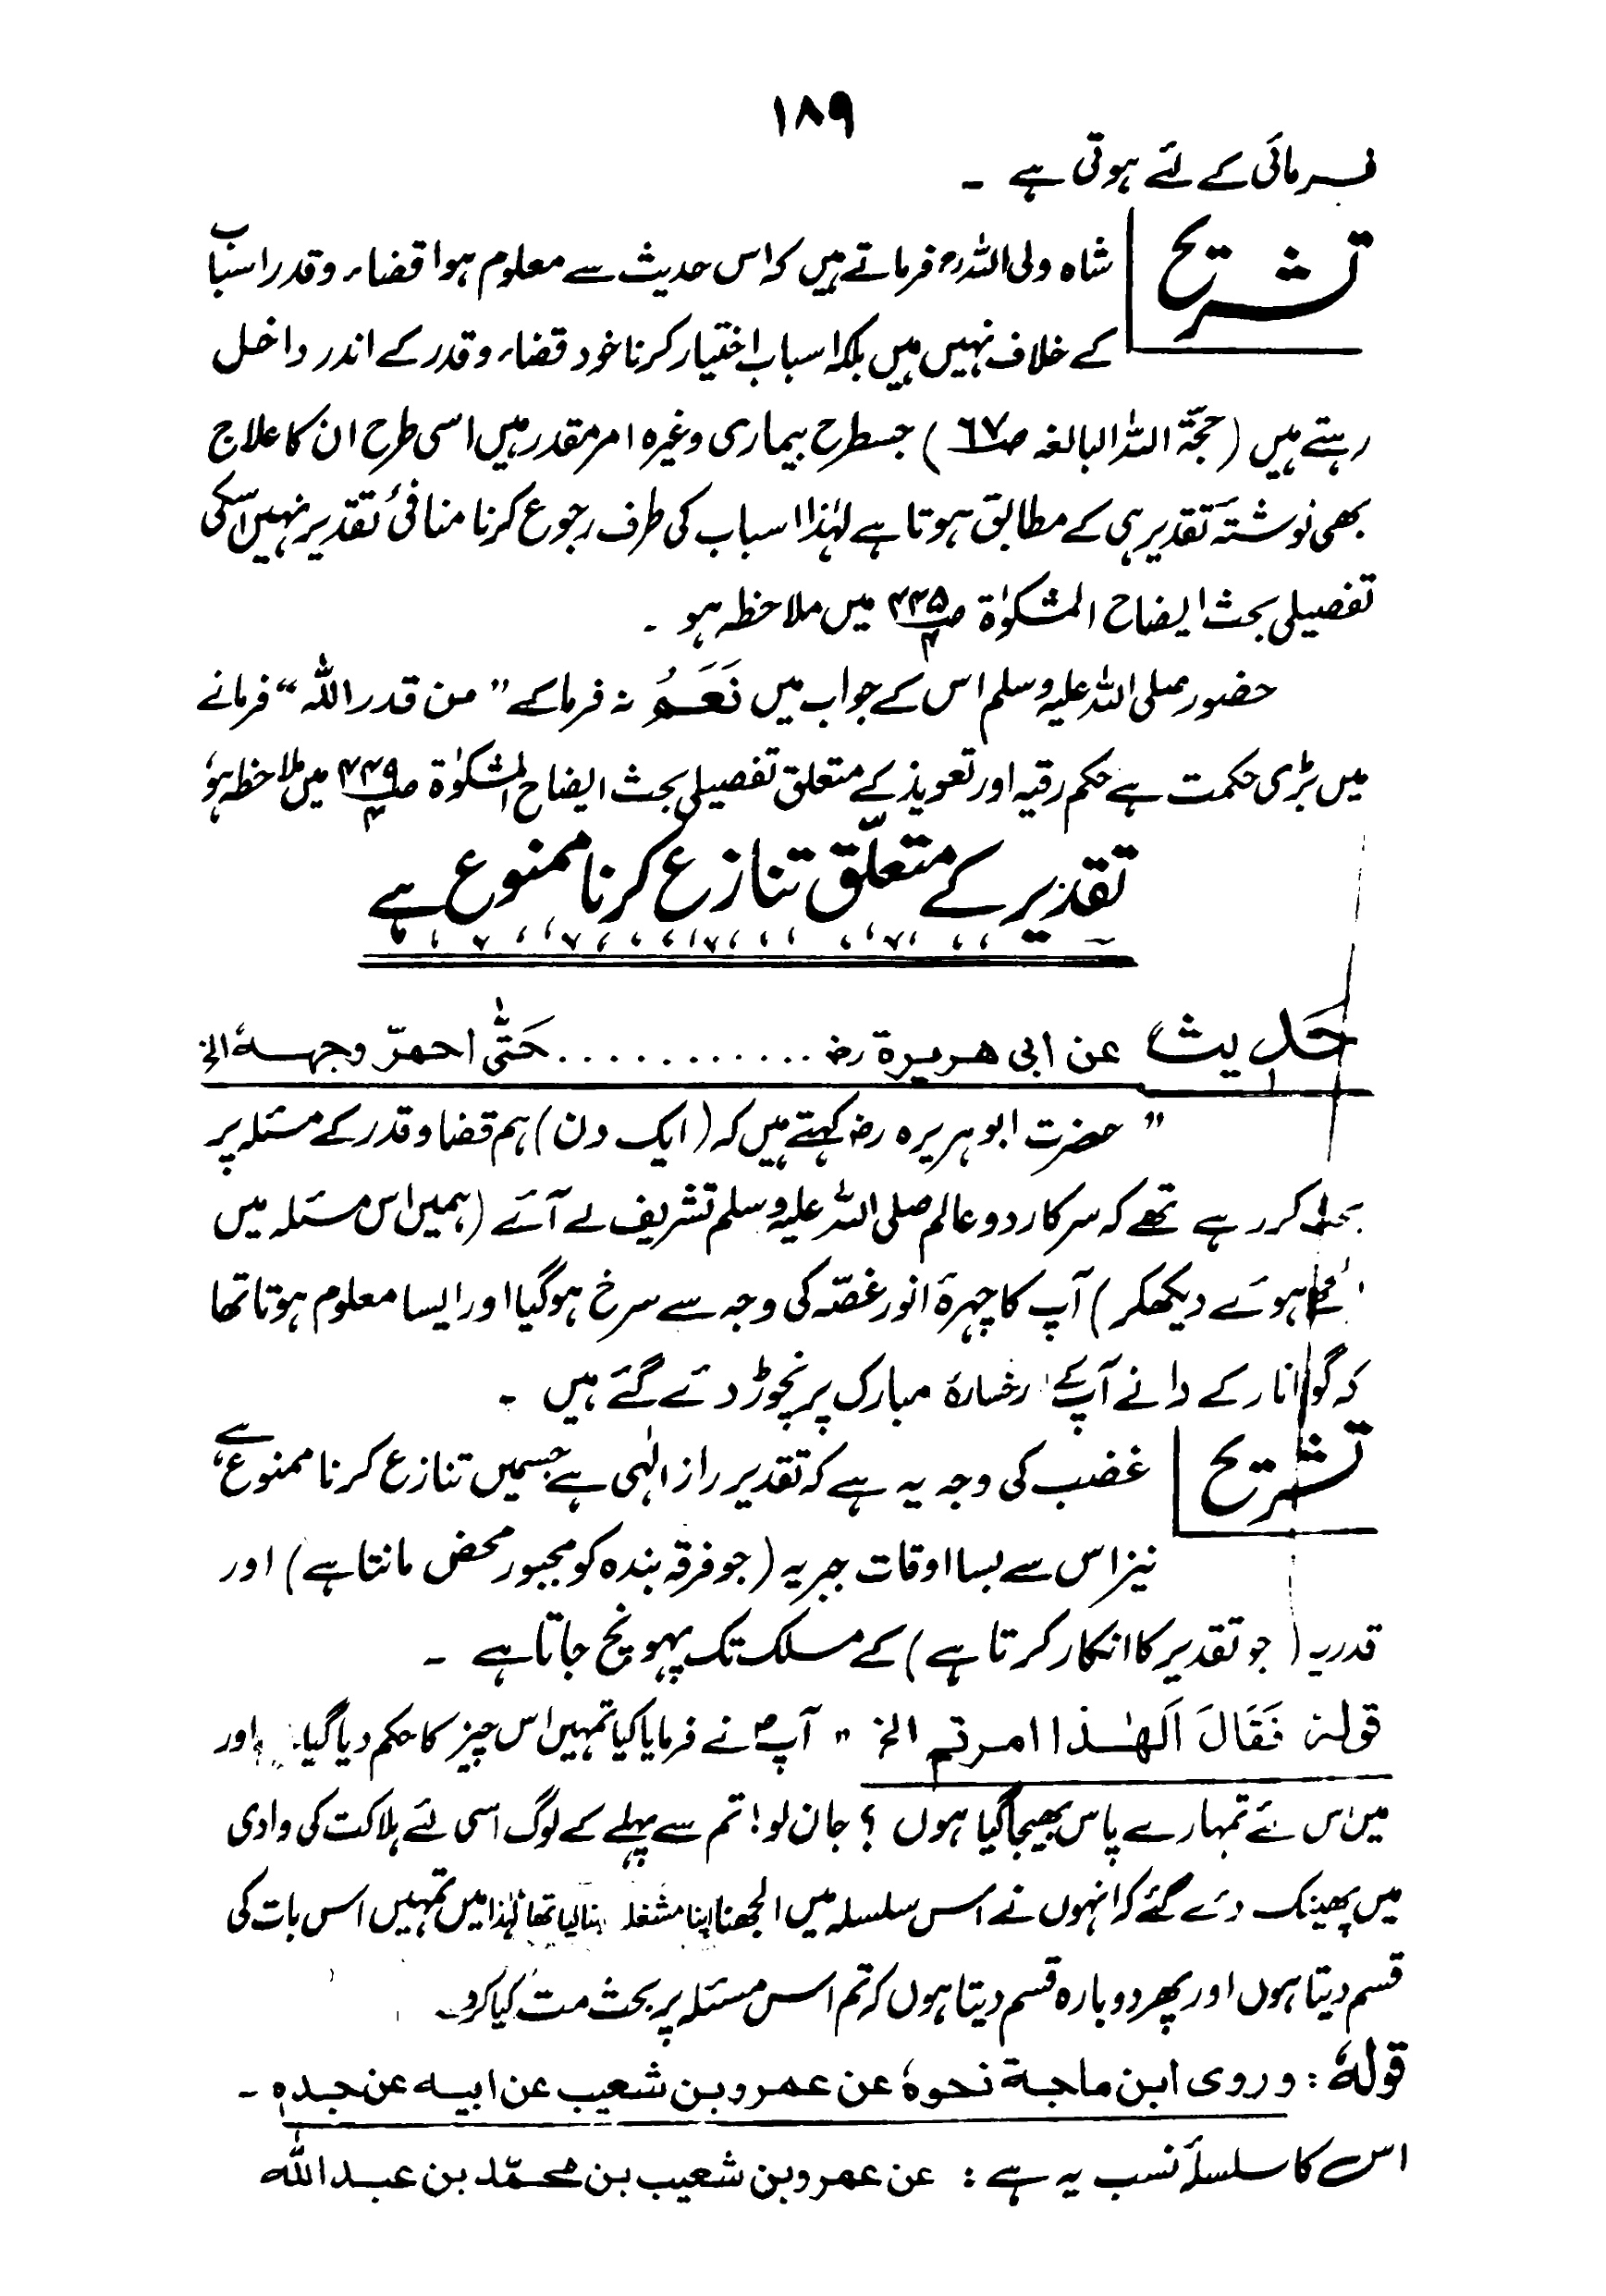 ۱۸۹
فرمائی کے لئے ہوتی ہے ۔
تشریح شاہ ولی اللہؒ فرماتے ہیں کہ اس حدیث سے معلوم ہوا قضاء وقدر اسباب
کے خلاف نہیں ہیں بلکہ اسباب اختیار کرنا خود قضاء وقدر کے اندر داخل
رہتے ہیں (حجّۃ اللہ البالغہ ص ۶۷) جسطرح بیماری وغیرہ امر مقدر ہیں اسی طرح ان کا علاج
بھی نوشتۂ تقدیر ہی کے مطابق ہوتا ہے لہٰذا اسباب کی طرف رجوع کرنا منافیٔ تقدیر نہیں اسکی
تفصیلی بحث ایضاح المشکوٰۃ ص ۴۴۵/۴ میں ملاحظہ ہو ۔
حضور صلی اللہ علیہ وسلم اس کے جواب میں نَعَمْ نہ فرما کے ” من قدر اللہ “ فرمانے
میں بڑی حکمت ہے حکم رقیہ اور تعویذ کے متعلق تفصیلی بحث ایضاح المشکوٰۃ ص ۴۴۹/۴ میں ملاحظہ ہو
تقدیر کے متعلّق تنازع کرنا ممنوع ہے
حَدِیث عن ابی ھریرۃ رض ............ حَتّٰی احمرّ وجہہٗ الخ
” حضرت ابو ہریرہ رض کہتے ہیں کہ (ایک دن) ہم قضا وقدر کے مسئلہ پر
بحث کر رہے تھے کہ سرکار دو عالم صلی اللہ علیہ وسلم تشریف لے آئے (ہمیں اس مسئلہ میں
ہوئے دیکھکر) آپ کا چہرۂ انور غصّہ کی وجہ سے سرخ ہوگیا اور ایسا معلوم ہوتا تھا
کہ گویا انار کے دانے آپ کے رخسارۂ مبارک پر نچوڑ دئے گئے ہیں ۔
تشریح غضب کی وجہ یہ ہے کہ تقدیر راز الٰہی ہے جسمیں تنازع کرنا ممنوع ہے،
نیز اس سے بسا اوقات جبریہ (جو فرقہ بندہ کو مجبور محض مانتا ہے) اور
قدریہ (جو تقدیر کا انکار کرتا ہے) کے مسلک تک پہونچ جاتا ہے ۔
قولہٗ فَقَالَ اَلھٰذا امرتم الخ ” آپؐ نے فرمایا کیا تمہیں اس چیز کا حکم دیا گیا، اور
میں اس لئے تمہارے پاس بھیجا گیا ہوں ؟ جان لو! تم سے پہلے کے لوگ اسی لئے ہلاکت کی وادی
میں پھینک دئے گئے کہ انہوں نے اس سلسلہ میں الجھنا اپنا مشغلہ بنا لیا تھا لہٰذا میں تمہیں اس بات کی
قسم دیتا ہوں اور پھر دوبارہ قسم دیتا ہوں کہ تم اس مسئلہ پر بحث مت کیا کرو۔
قولہٗ : وروی ابن ماجۃ نحوہٗ عن عمرو بن شعیب عن ابیہ عن جدہ ۔
اس کا سلسلۂ نسب یہ ہے : عن عمرو بن شعیب بن محمّد بن عبداللہ